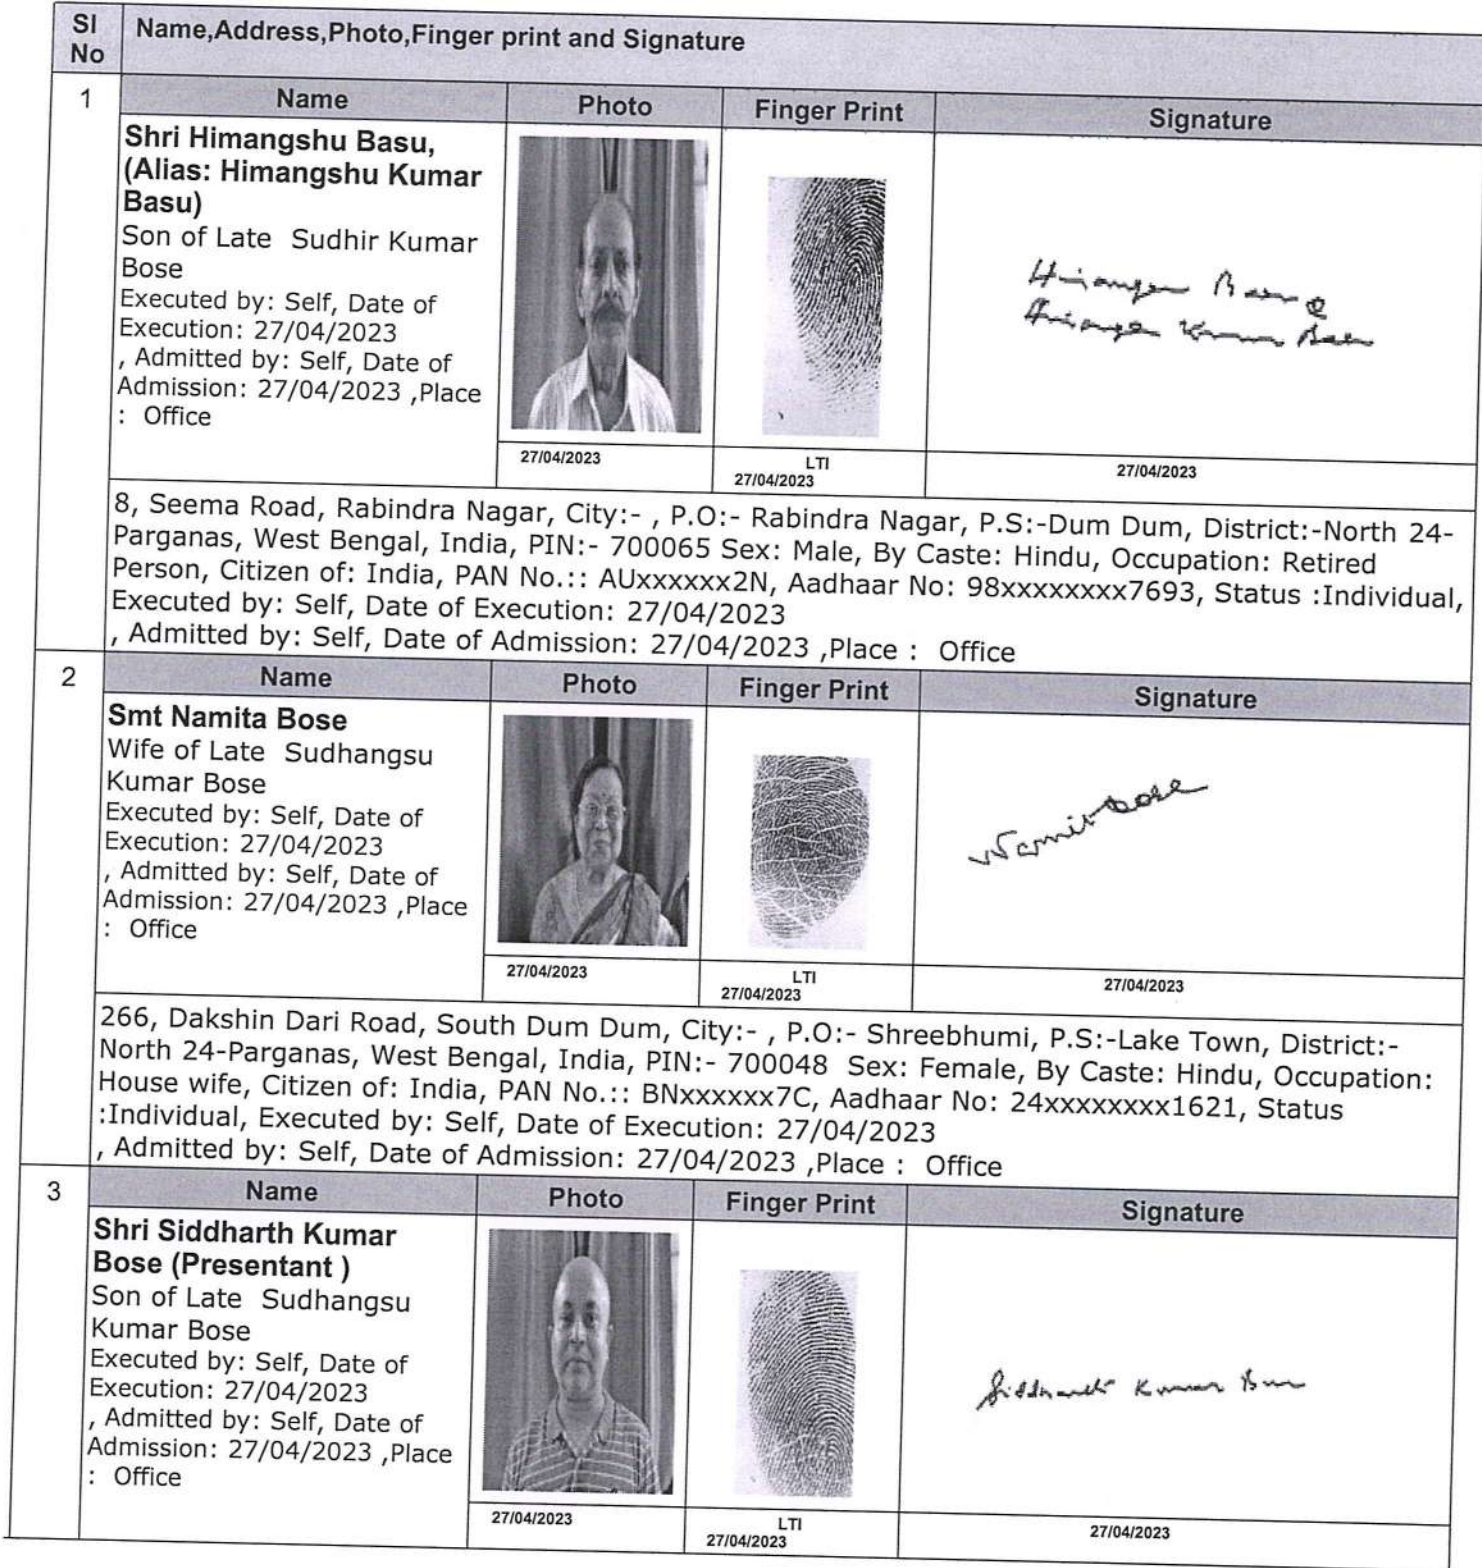 Sl No
Name,Address,Photo,Finger print and Signature
1
Name
Photo
Finger Print
Signature
Shri Himangshu Basu,
(Alias: Himangshu Kumar
Basu)
Son of Late Sudhir Kumar
Bose
Executed by: Self, Date of
Execution: 27/04/2023
, Admitted by: Self, Date of
Admission: 27/04/2023 ,Place
: Office
27/04/2023
LTI
27/04/2023
27/04/2023
8, Seema Road, Rabindra Nagar, City:- , P.O:- Rabindra Nagar, P.S:-Dum Dum, District:-North 24-
Parganas, West Bengal, India, PIN:- 700065 Sex: Male, By Caste: Hindu, Occupation: Retired
Person, Citizen of: India, PAN No.:: AUxxxxxx2N, Aadhaar No: 98xxxxxxxx7693, Status :Individual,
Executed by: Self, Date of Execution: 27/04/2023
, Admitted by: Self, Date of Admission: 27/04/2023 ,Place : Office
2
Name
Photo
Finger Print
Signature
Smt Namita Bose
Wife of Late Sudhangsu
Kumar Bose
Executed by: Self, Date of
Execution: 27/04/2023
, Admitted by: Self, Date of
Admission: 27/04/2023 ,Place
: Office
27/04/2023
LTI
27/04/2023
27/04/2023
266, Dakshin Dari Road, South Dum Dum, City:- , P.O:- Shreebhumi, P.S:-Lake Town, District:-
North 24-Parganas, West Bengal, India, PIN:- 700048 Sex: Female, By Caste: Hindu, Occupation:
House wife, Citizen of: India, PAN No.:: BNxxxxxx7C, Aadhaar No: 24xxxxxxxx1621, Status
:Individual, Executed by: Self, Date of Execution: 27/04/2023
, Admitted by: Self, Date of Admission: 27/04/2023 ,Place : Office
3
Name
Photo
Finger Print
Signature
Shri Siddharth Kumar
Bose (Presentant )
Son of Late Sudhangsu
Kumar Bose
Executed by: Self, Date of
Execution: 27/04/2023
, Admitted by: Self, Date of
Admission: 27/04/2023 ,Place
: Office
Kumar
27/04/2023
LTI
27/04/2023
27/04/2023